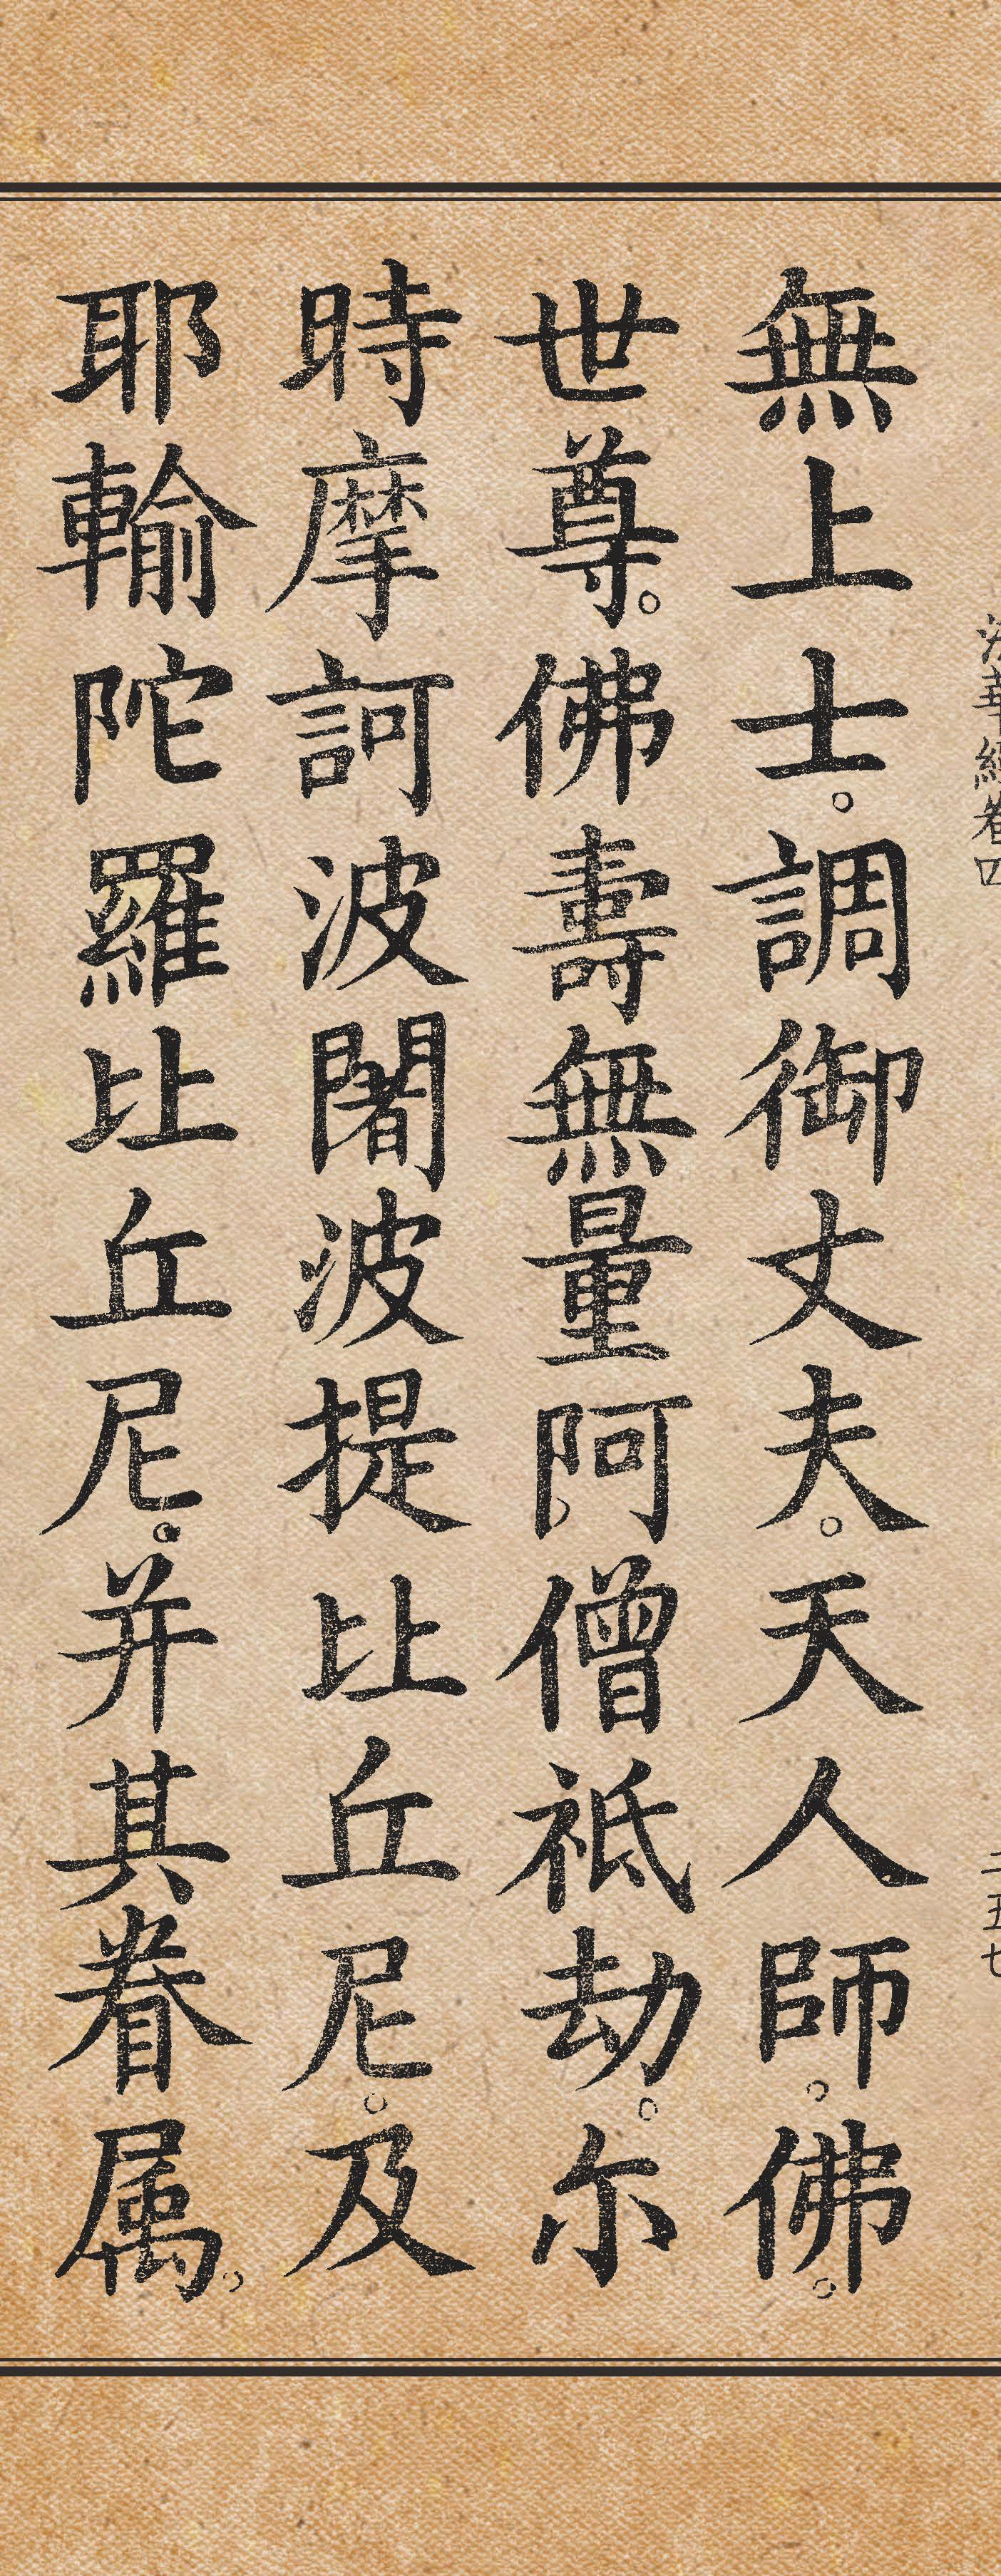 法華經卷四 二五七
無上士。調御丈夫。天人師。佛。
世尊。佛壽無量阿僧祗劫。尒
時摩訶波闍波提比丘尼。及
耶輸陀羅比丘尼。并其眷属。